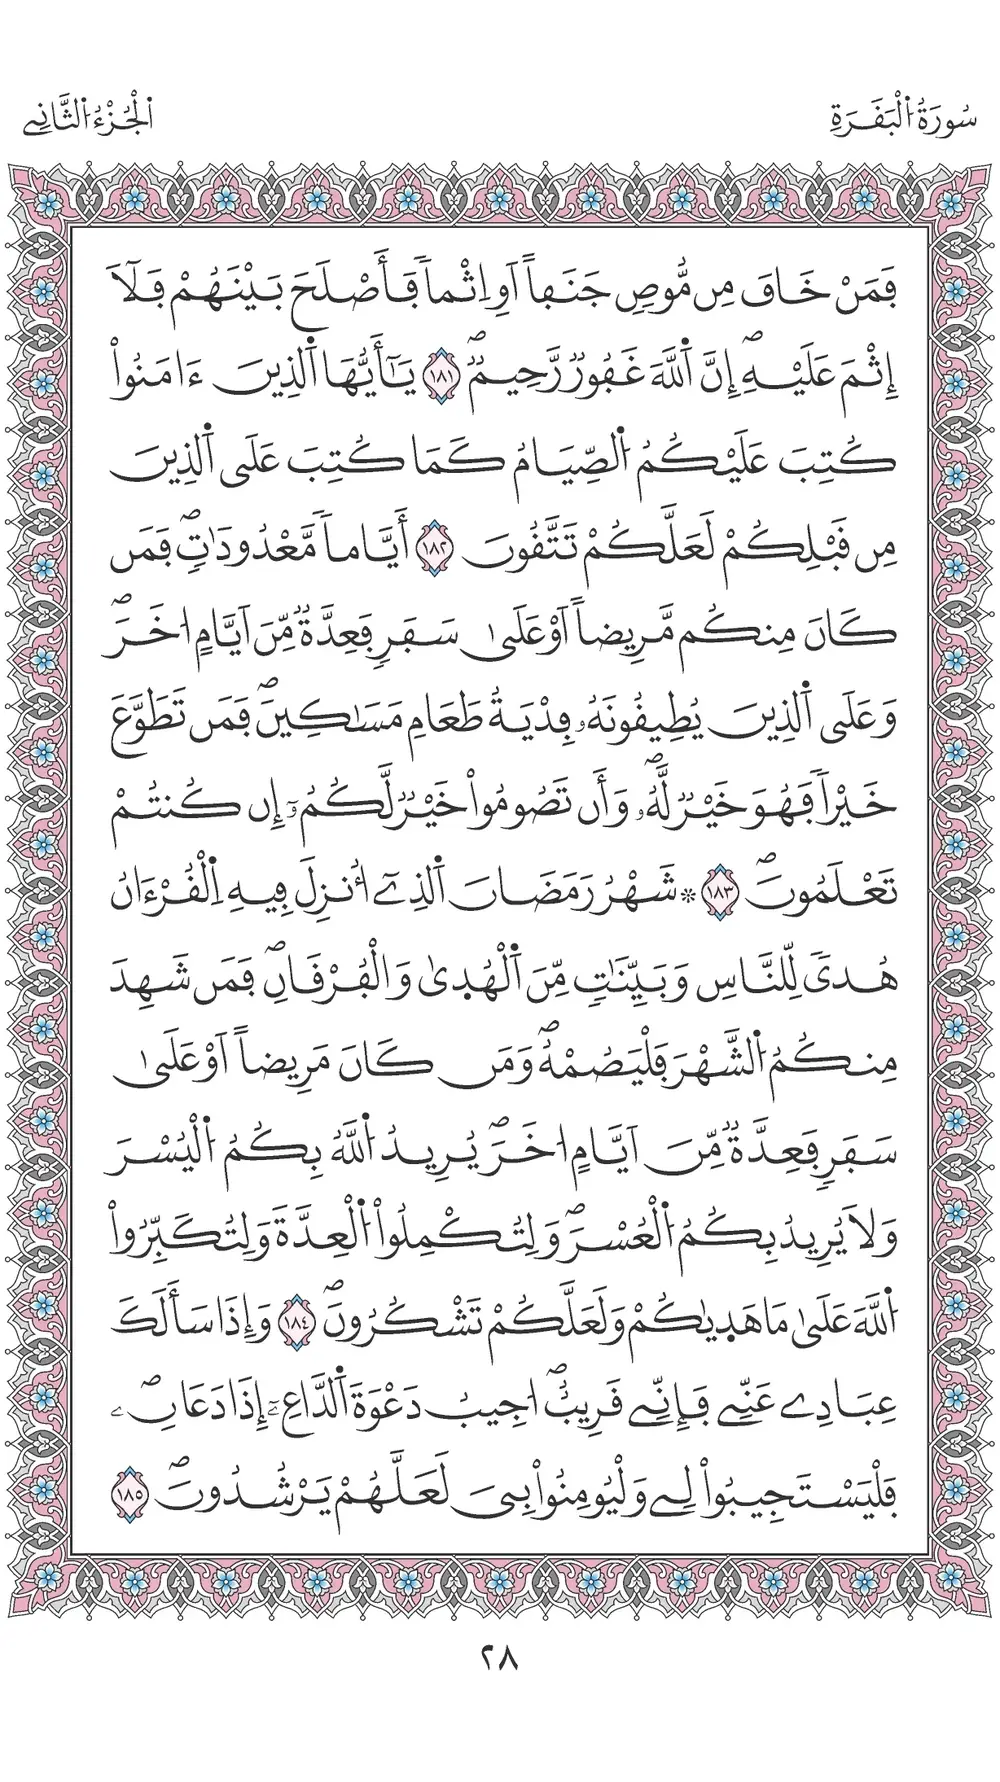 سُورَةُ الْبَقَرَةِ
الْجُزْءُ الثَّانِي
فَمَنْ خَافَ مِن مُّوصٍ جَنَفاً اَوِ اِثْماً فَأَصْلَحَ بَيْنَهُمْ فَلَآ
إِثْمَ عَلَيْهِۖ إِنَّ اَ۬للَّهَ غَفُورٞ رَّحِيمٞۖ ١٨١ يَٰٓأَيُّهَا اَ۬لذِينَ ءَامَنُواْ
كُتِبَ عَلَيْكُمُ اُ۬لصِّيَامُ كَمَا كُتِبَ عَلَى اَ۬لذِينَ
مِن قَبْلِكُمْ لَعَلَّكُمْ تَتَّقُونَ ١٨٢ أَيَّاماٗ مَّعْدُودَٰتٖۖ فَمَن
كَانَ مِنكُم مَّرِيضاً اَوْ عَلَىٰ سَفَرٖ فَعِدَّةٞ مِّنَ اَيَّامٍ اُخَرَۖ
وَعَلَى اَ۬لذِينَ يُطِيقُونَهُۥ فِدْيَةُ طَعَامِ مَسَٰكِينَۖ فَمَن تَطَوَّعَ
خَيْراٗ فَهُوَ خَيْرٞ لَّهُۥۖ وَأَن تَصُومُواْ خَيْرٞ لَّكُمُۥٓ إِن كُنتُمْ
تَعْلَمُونَۖ ١٨٣ ۞ شَهْرُ رَمَضَانَ اَ۬لذِےٓ أُنزِلَ فِيهِ اِ۬لْقُرْءَانُ
هُدىٗ لِّلنَّاسِ وَبَيِّنَٰتٖ مِّنَ اَ۬لْهُد۪ىٰ وَالْفُرْقَانِۖ فَمَن شَهِدَ
مِنكُمُ اُ۬لشَّهْرَ فَلْيَصُمْهُۖ وَمَن كَانَ مَرِيضاً اَوْ عَلَىٰ
سَفَرٖ فَعِدَّةٞ مِّنَ اَيَّامٍ اُخَرَۖ يُرِيدُ اُ۬للَّهُ بِكُمُ اُ۬لْيُسْرَ
وَلَا يُرِيدُ بِكُمُ اُ۬لْعُسْرَۖ وَلِتُكْمِلُواْ اُ۬لْعِدَّةَ وَلِتُكَبِّرُواْ
اُ۬للَّهَ عَلَىٰ مَا هَد۪يٰكُمْ وَلَعَلَّكُمْ تَشْكُرُونَۖ ١٨٤ وَإِذَا سَأَلَكَ
عِبَادِے عَنِّے فَإِنِّے قَرِيبٌۖ اُجِيبُ دَعْوَةَ اَ۬لدَّاعِۦٓ إِذَا دَعَانِۦۖ
فَلْيَسْتَجِيبُواْ لِے وَلْيُومِنُواْ بِيَ لَعَلَّهُمْ يَرْشُدُونَۖ ١٨٥
٢٨